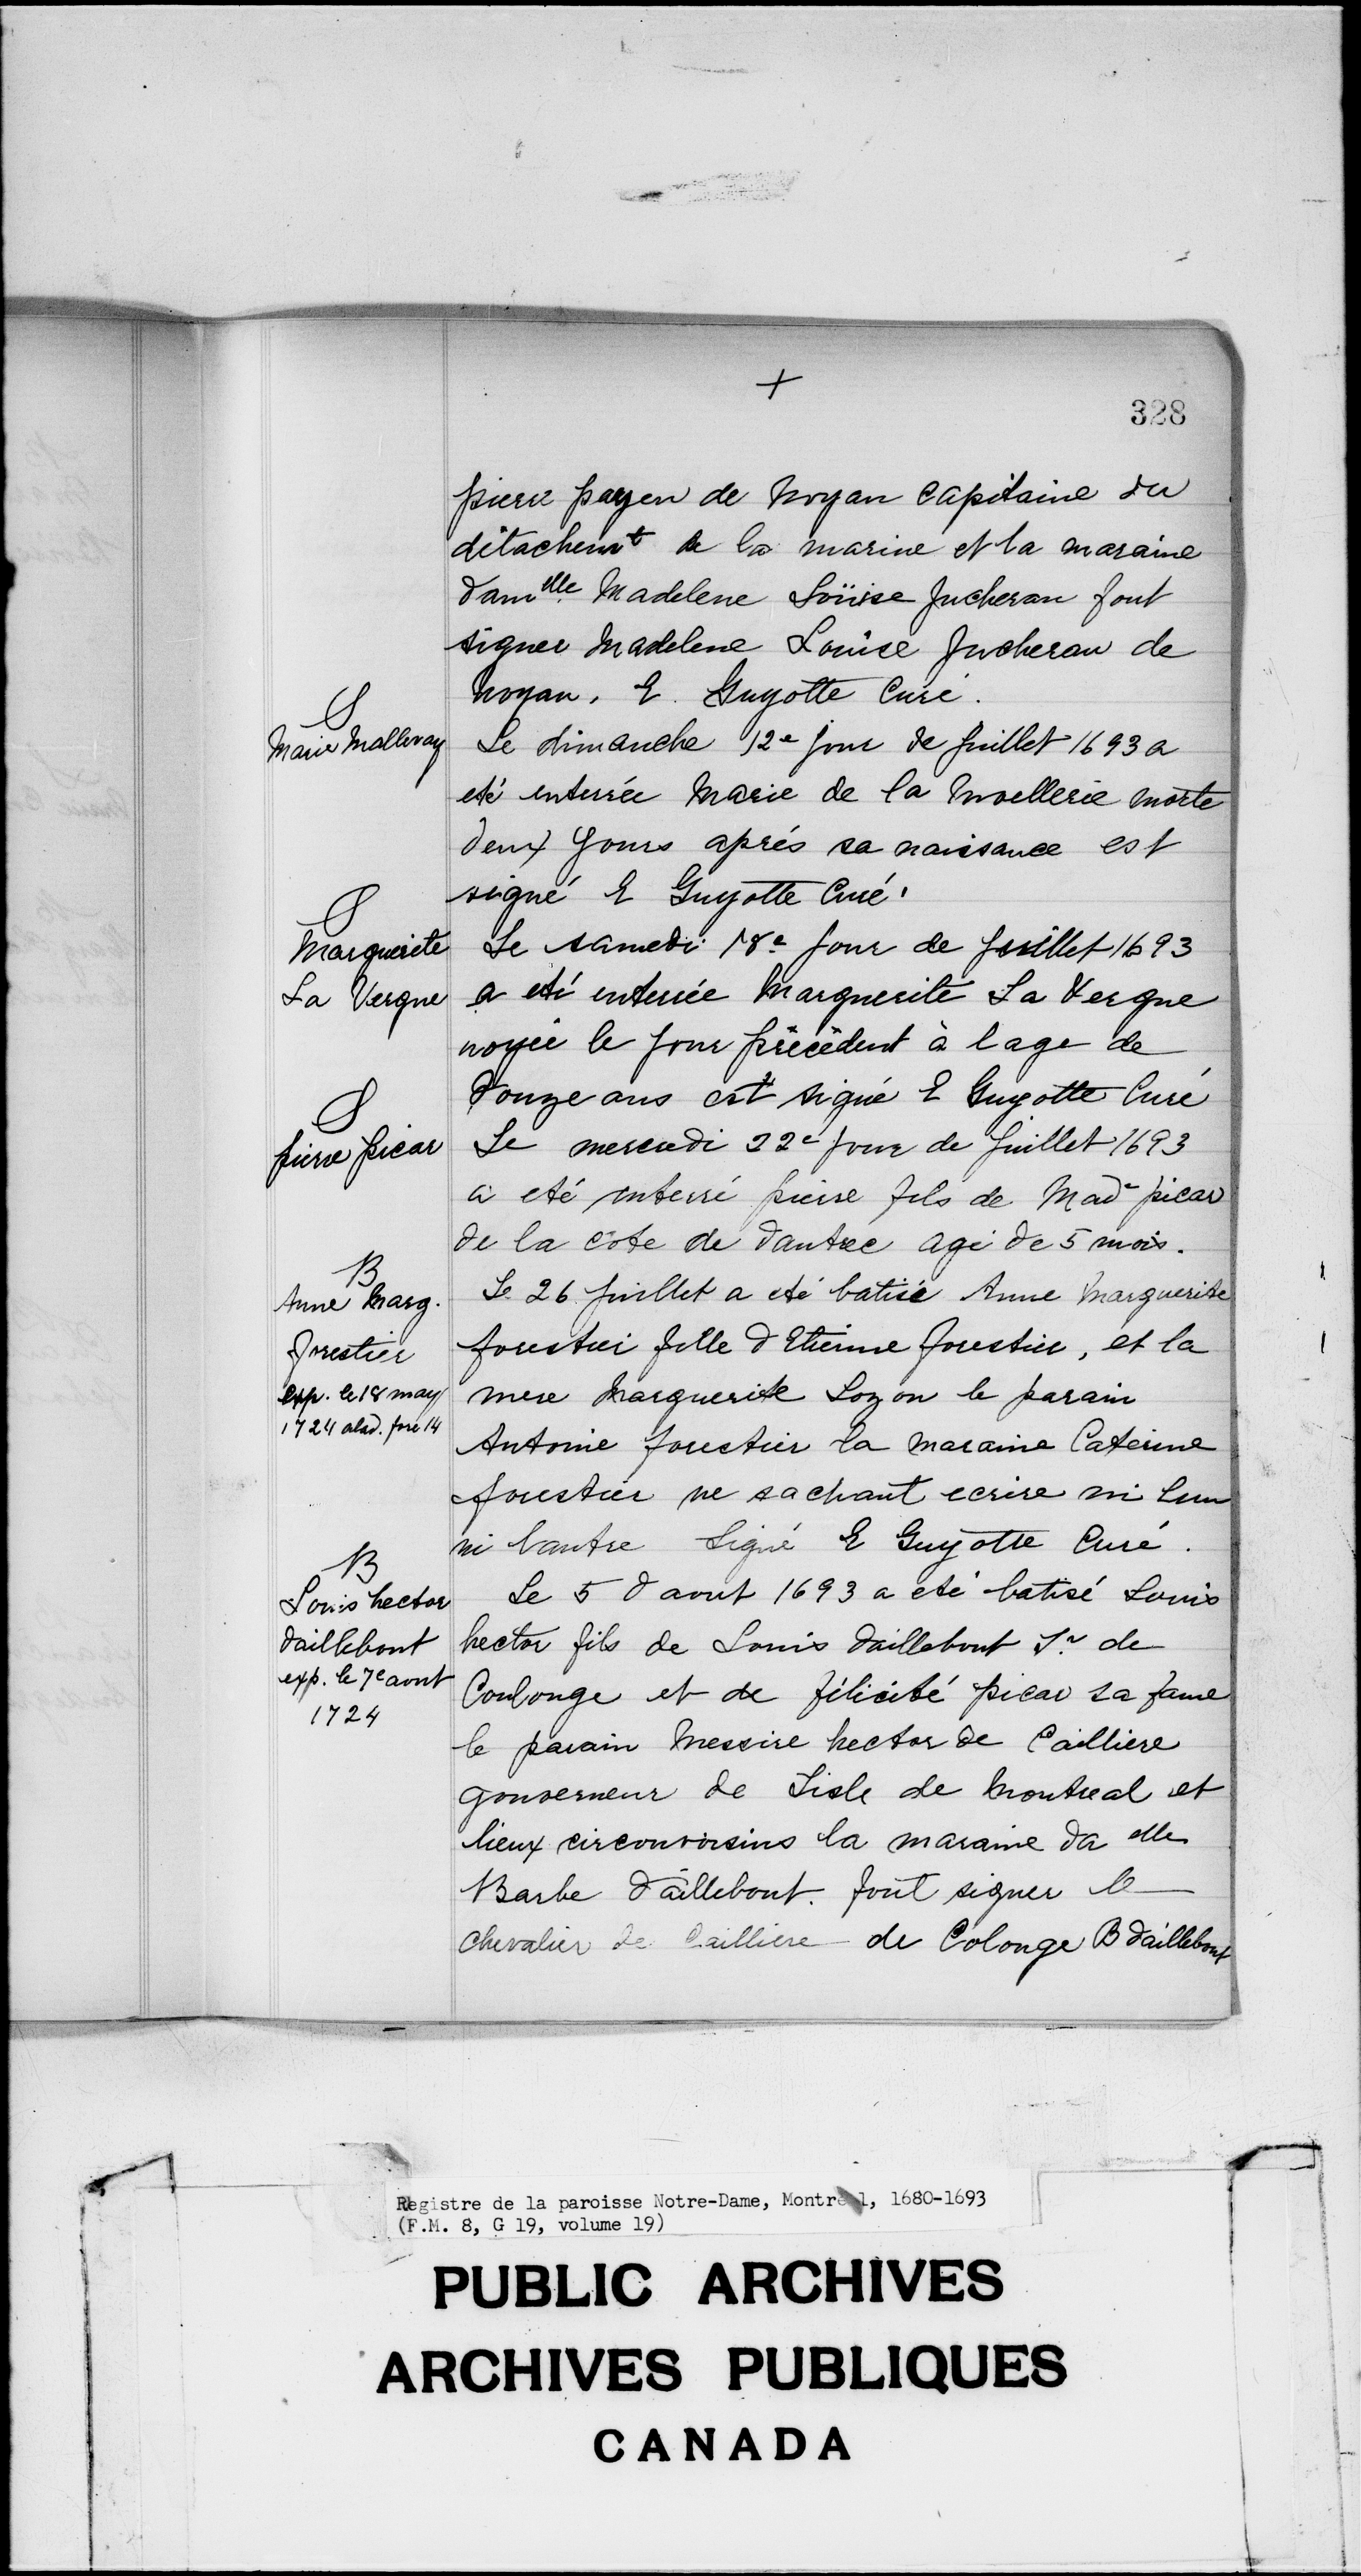 +
328
pierre payen de Noyan capitaine du
détachemt de la marine et la maraine
dam elle Madelene Loüise Jucherau font
signer Madelene Louise Jucherau de
Noyan. E. Guyotte Curé.
S
Marie Mallevay
Le dimanche 12e jour de juillet 1693 a
eté enterrée Marie de la Moellerie morte
deux Jours aprés sa naissance est
signé E Guyotte Curé.
S
Marguerite
La Vergne
Le samedi 18e jour de juillet 1693
a eté enterrée Marguerite La Vergne
noyée le jour précédent à lage de
douze ans est signé E Guyotte Curé
S
pierre picar
Le mercredi 22e jour de juillet 1693
a eté enterré pierre fils de Made picar
de la cote de dautre agé de 5 mois.
B
Anne Marg.
forestier
exp. le 18 may
1724
Le 26 juillet a eté batisé Anne Marguerite
forestier fille d Etienne forestier, et la
mere Marguerite Lozon le parain
Antoine forestier la maraine Caterine
forestier ne sachant ecrire ni lun
ni lautre Signé E Guyotte Curé.
B
Louis hector
daillebout
exp. le 7e aout
1724
Le 5 d aout 1693 a eté batisé Louis
hector fils de Louis daillebout Sr. de
Coulonge et de félicité picar sa fame
le parain Messire hector de Cailliere
gouverneur de Lisle de Montreal et
lieux circonvoisins la maraine da elle
Barbe d'aillebout. font signer le
chevalier de Cailliere de Colonge B daillebout
Registre de la paroisse Notre-Dame, Montréal, 1680-1693
(F.M. 8, G 19, volume 19)
PUBLIC ARCHIVES
ARCHIVES PUBLIQUES
CANADA